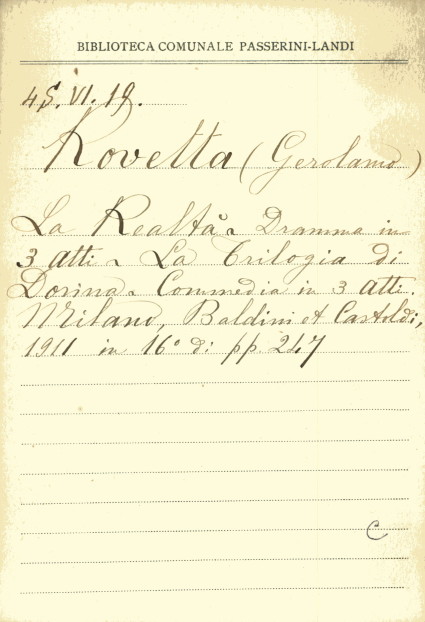 BIBLIOTECA COMUNALE PASSERINI-LANDI
4S. VI. 19.
Rovetta (Gerolamo)
La Realtà - Dramma in
3 atti - La Trilogia di
Dorina - Commedia in 3 atti.
Milano, Baldini et Castoldi,
1911 in 16° di pp. 247
C